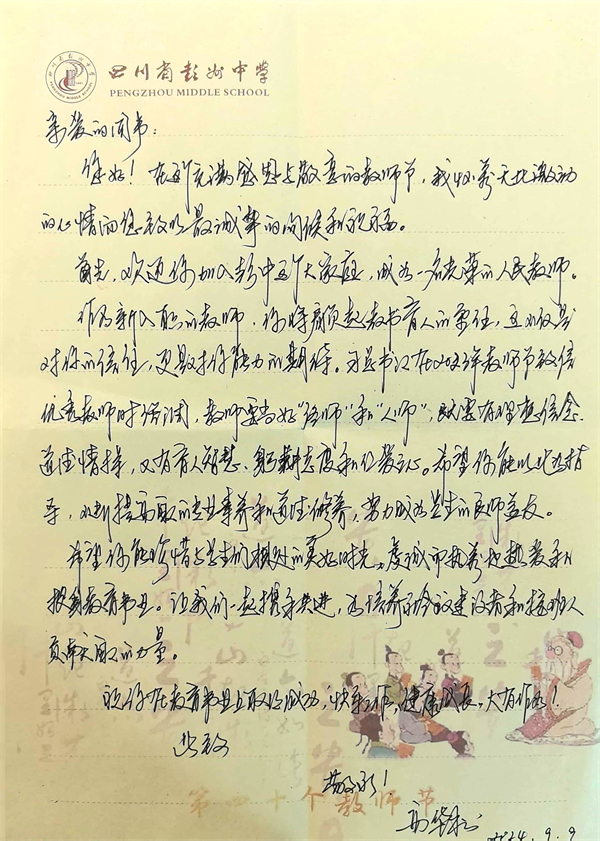 四川省彭州中学
PENGZHOU MIDDLE SCHOOL
亲爱的闵书:
你好!在这个充满感恩与敬意的教师节,我怀着无比激动
的心情向您致以最诚挚的问候和祝福。
首先,欢迎你加入彭中这个大家庭,成为一名光荣的人民教师。
作为新入职的教师,你将肩负起教书育人的重任,这不仅是
对你的信任,更是对你能力的期待。习总书记在2023年教师节致信
优秀教师时强调,教师要当好“经师”和“人师”,既要有理想信念、
道德情操,又有育人智慧、躬耕态度和仁爱之心。希望你能以此为指
导,不断提高自己的专业素养和道德修养,努力成为学生的良师益友。
希望你能珍惜与学生们相处的美好时光,虔诚而执着地热爱和
投身教育事业。让我们一起携手共进,为培养新时代建设者和接班人
贡献自己的力量。
祝你在教育事业上取得成功,快乐工作,健康成长,大有作为!
此致
敬礼!
第四十个教师节
2024.9.9